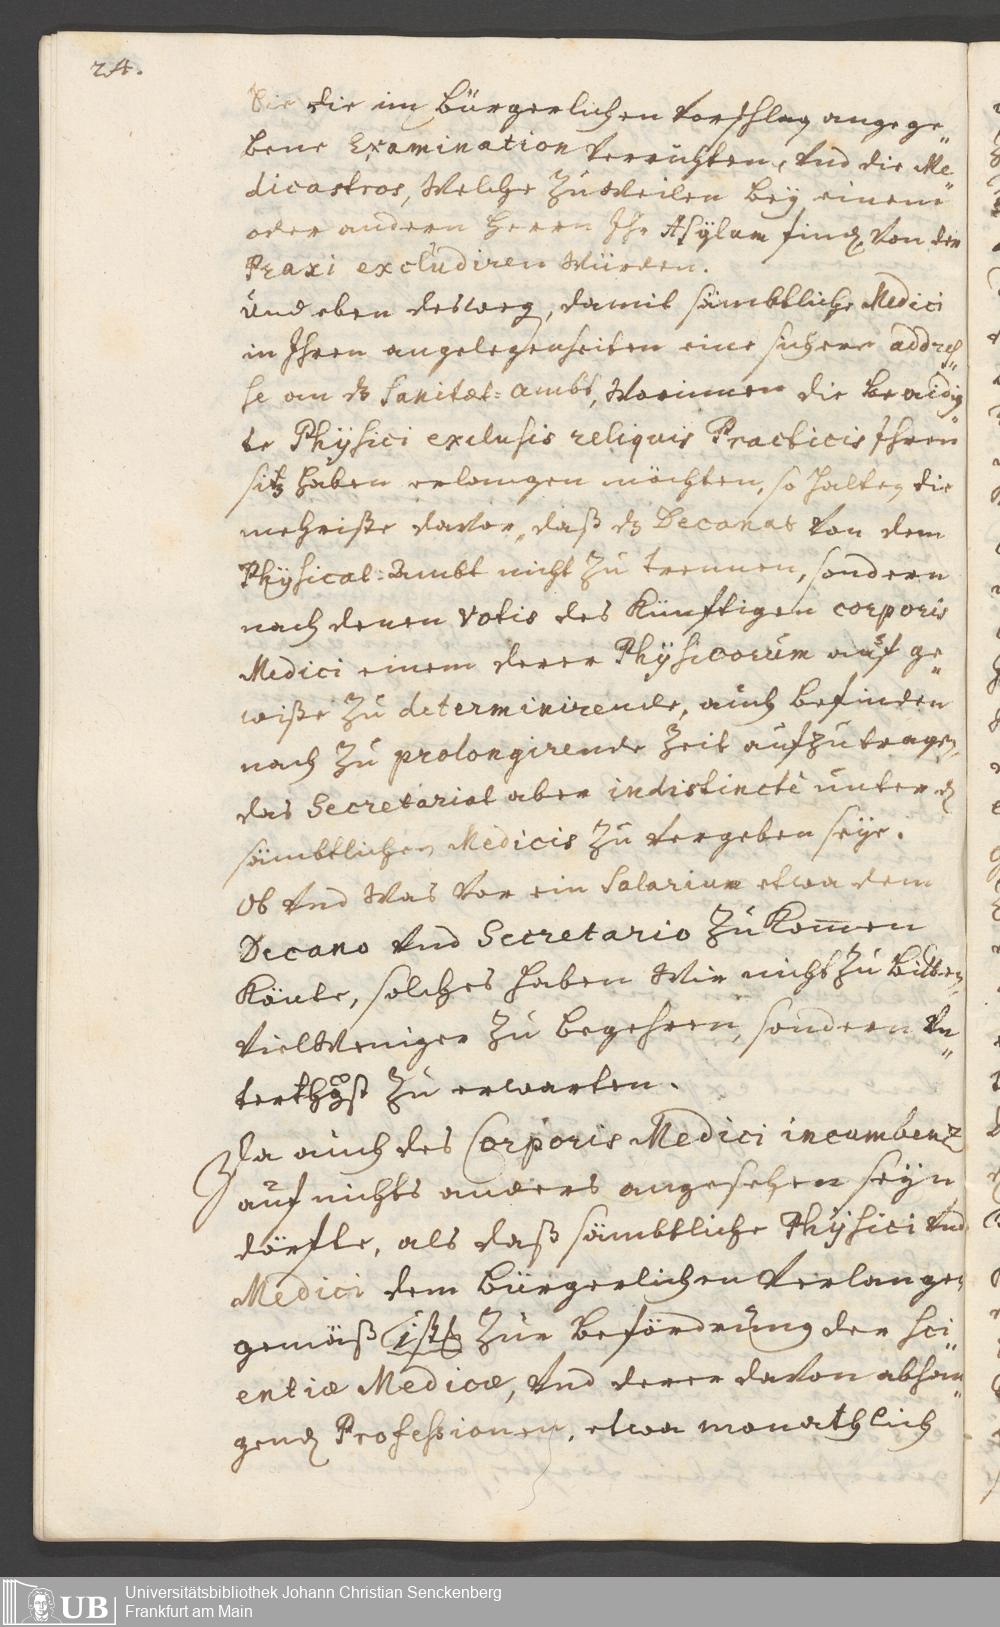 24.
Sie die im Bürgerlichen Vorschlag angege„
bene Examination Verrichten, Vnd die Me„
dicastros, Welche Zuweilen bey einem
oder andern Herrn Ihr Asÿlum finden, Von der
Praxi excludiren Würden.
Und eben desweg, damit sämbtliche Medici
in Ihren angelegenheiten eine sichere addres„
se an dz Sanitæt=ambt, Worinnen die beaidig„
te Phÿsici exclusis reliquis Practicis Ihren
sitz haben erlangen möchten, so halten die
mehriste davor, daß dz Decanat Von dem
Phÿsicat=Ambt nicht Zu trennen, sondern
nach denen Votis des Künfftigen corporis
Medici einem derer Phÿsicorum auf ge„
wiße Zu determinirende, auch befinden
nach Zu prolongirende Zeit aufzutragen,
das Secretariat aber indistinctè unter den
sämbtlichen Medicis Zu Vergeben seÿe.
Ob Vnd Was Vor ein Salarium etwa dem
Decano Vnd Secretario Zukom̄en
Könte, solches haben Wir nicht Zu bitten,
Vielweniger Zu begehren, sondern Vn„
terthgst Zu erwarten.
Da auch des Corporis Medici incumbenz
auf nichts anders angesehen seyn
dörffte, als daß sämbtliche Phÿsici Vnd
Medici dem Bürgerlichen Verlangen
gemäß Zur beförderung der Sci„
entiæ Medicæ, Vnd derer davon abhan„
genden Professionen, etwa monathlich
Universitätsbibliothek Johann Christian Senckenberg
Frankfurt am Main
UB